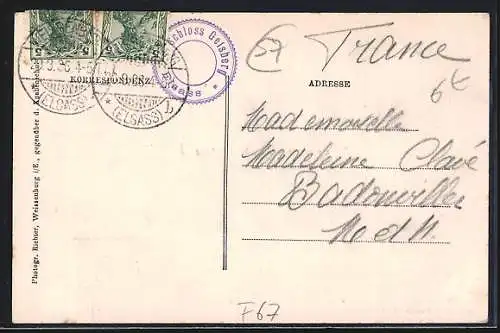 France
Schloss Geisberg
Elsass
5 5
KORRESPONDENZ
ADRESSE
(ELSASS)
(ELSASS)
Mademoiselle
Madeleine Clavé
Badonviller
M et M.
Photogr. Richter, Weissenburg i/E., gegenüber d.
F67